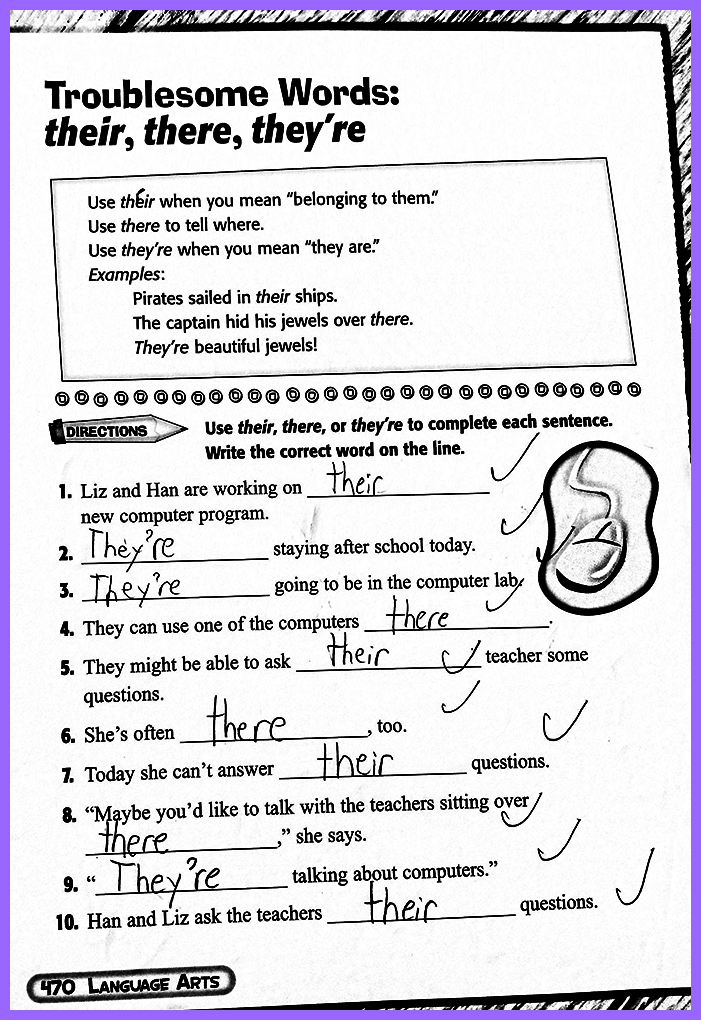 Troublesome Words:
their, there, they're
Use their when you mean "belonging to them."
Use there to tell where.
Use they're when you mean "they are."
Examples:
Pirates sailed in their ships.
The captain hid his jewels over there.
They're beautiful jewels!
DIRECTIONS Use their, there, or they're to complete each sentence.
Write the correct word on the line.
1. Liz and Han are working on their
new computer program.
2. They're staying after school today.
3. They're going to be in the computer lab.
4. They can use one of the computers there.
5. They might be able to ask their teacher some
questions.
6. She's often there, too.
7. Today she can't answer their questions.
8. "Maybe you'd like to talk with the teachers sitting over
there," she says.
9. "They're talking about computers."
10. Han and Liz ask the teachers their questions.
470 LANGUAGE ARTS